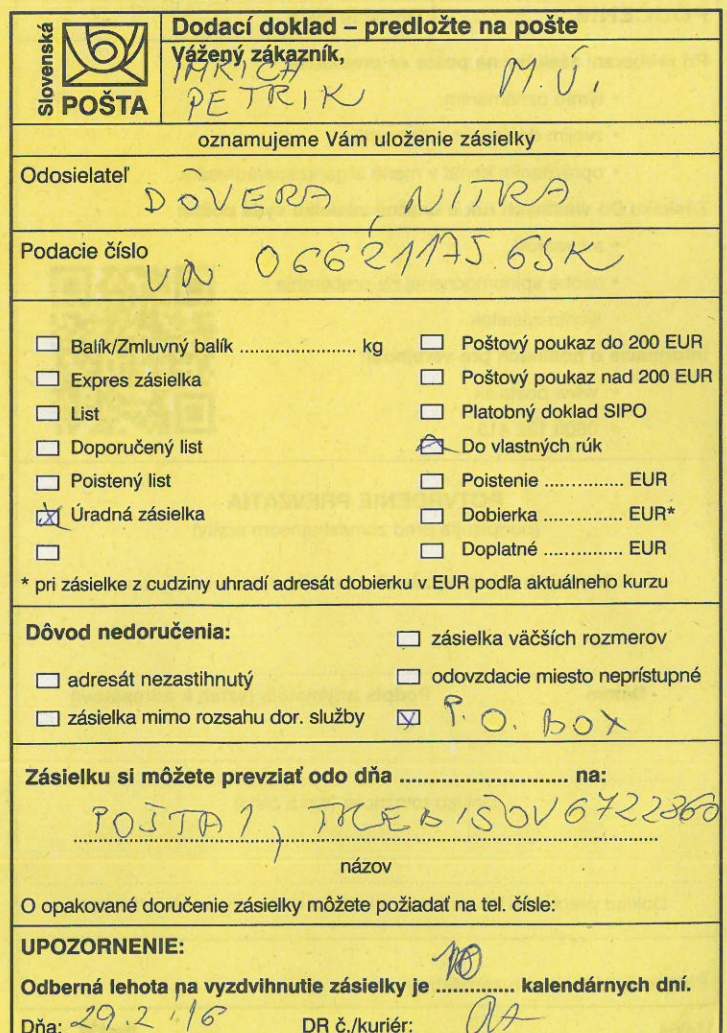 Slovenská
POŠTA
Dodací doklad – predložte na pošte
Vážený zákazník,
IMRICH M.Ú.
PETRIK
oznamujeme Vám uloženie zásielky
Odosielateľ
DOVERA, NITRA
Podacie číslo
066211756SK
Balík/Zmluvný balík .................... kg
Expres zásielka
List
Doporučený list
Poistený list
Úradná zásielka
Poštový poukaz do 200 EUR
Poštový poukaz nad 200 EUR
Platobný doklad SIPO
Do vlastných rúk
Poistenie ............... EUR
Dobierka ............... EUR*
Doplatné ............... EUR
* pri zásielke z cudziny uhradí adresát dobierku v EUR podľa aktuálneho kurzu
Dôvod nedoručenia:
adresát nezastihnutý
zásielka mimo rozsahu dor. služby
zásielka väčších rozmerov
odovzdacie miesto neprístupné
P.O. BOX
Zásielku si môžete prevziať odo dňa .......................... na:
POŠTA 1, TREBIŠOV 6722860
názov
O opakované doručenie zásielky môžete požiadať na tel. čísle:
UPOZORNENIE:
Odberná lehota na vyzdvihnutie zásielky je ............. kalendárnych dní.
Dňa: 29.2.16 DR č./kuriér: